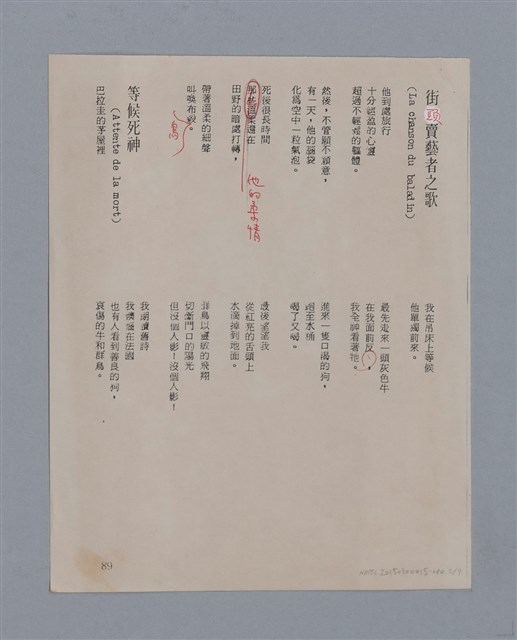 街頭賣藝者之歌
(La chanson du baladin)
他到處旅行
十分輕盈的心靈
超過不輕鬆的軀體。
然後，不管願不願意，
有一天，他的腦袋
化爲空中一粒氣泡。
死後很長時間
那些溫柔還在
他的柔情
田野的暗處打轉，
帶著溫柔的細聲
叫喚布穀。
鳥
等候死神
(Attente de la mort)
巴拉圭的茅屋裡
我在吊床上等候
他單獨前來。
最先走來一頭灰色牛
在我面前反，
我全神看著牠。
進來一隻口渴的狗，
趨至水桶
喝了又喝。
最後望望我
從紅亮的舌頭上
水滴掉到地面。
群鳥以靈敏的飛翔
切斷門口的陽光
但沒個人影！沒個人影！
我朗讀舊詩
我彷彿在法國
也有人看到善良的狗，
哀傷的牛和群鳥。
89